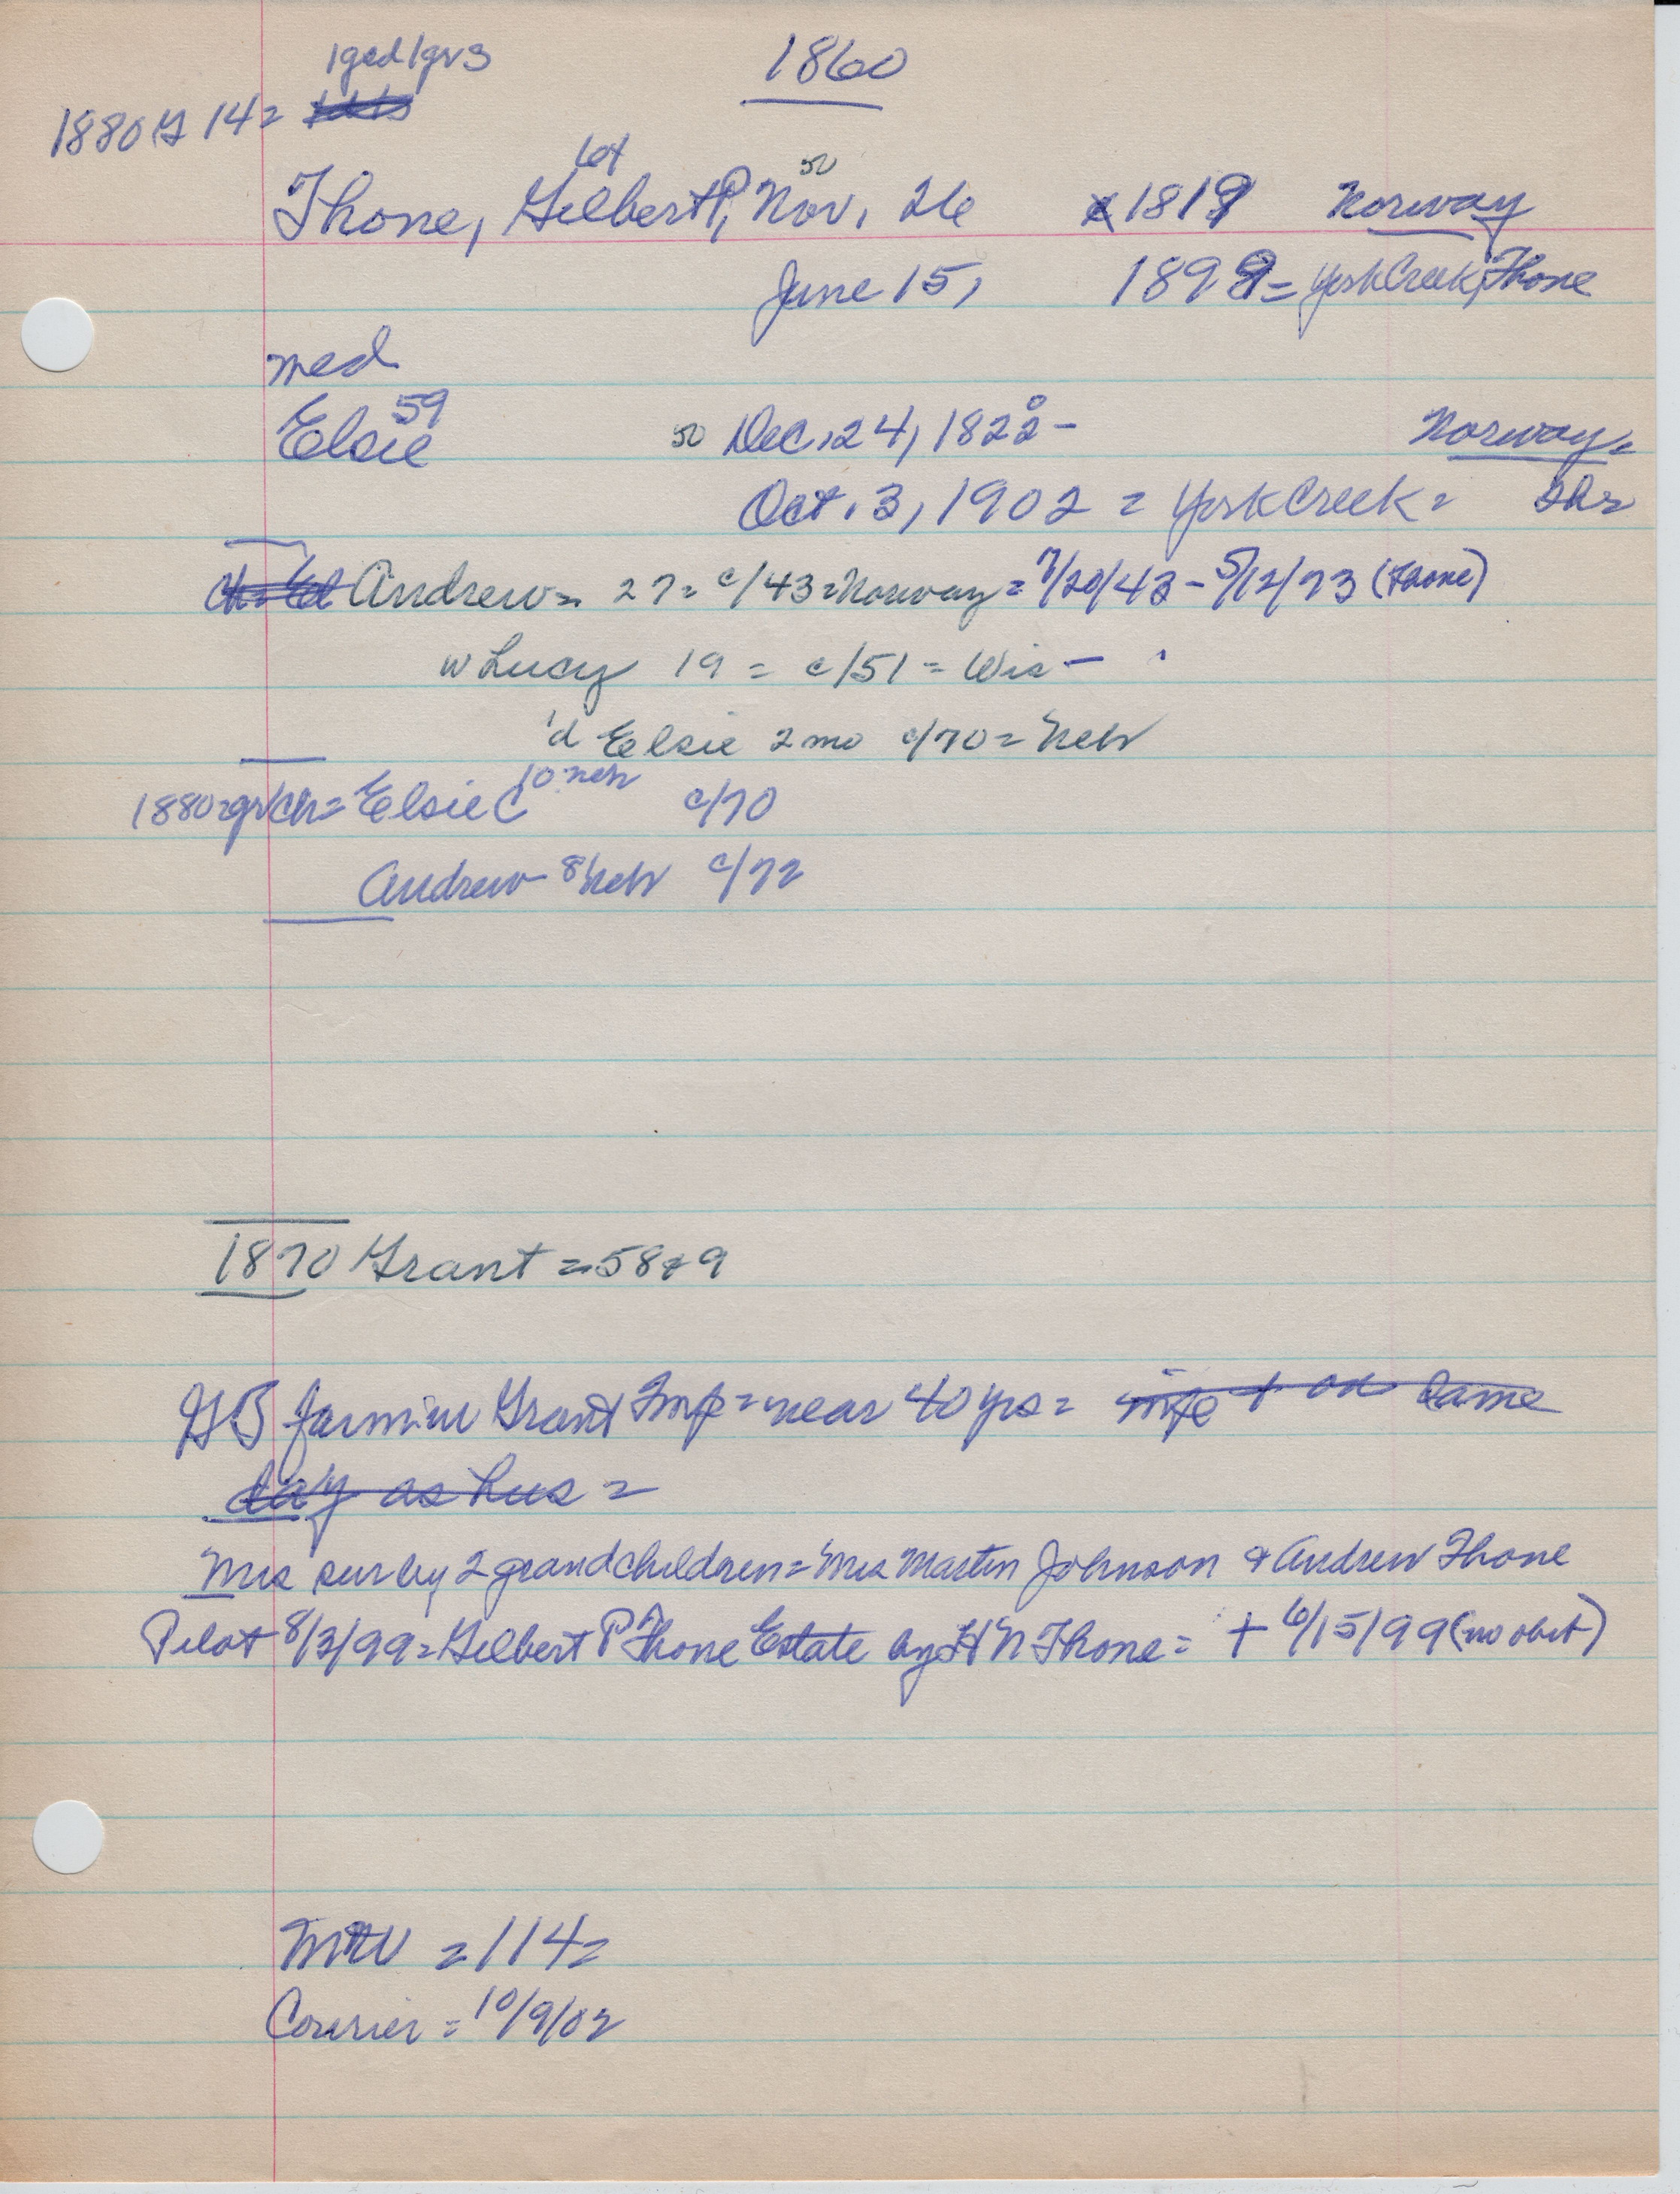 1gcd 1grs
1860
1880 G 14=
61 50
Thone, Gilbert P, Nov. 26 1819 Norway
June 15, 1899 = York Creek, Thone
med
59
Elsie 50 Dec. 24, 1822 - Norway =
Oct. 3, 1902 = York Creek =
Andrew = 27 = c/43 = Norway = 7/20/43 - 5/12/73 (Thone)
w Lucy 19 = c/51 = Wis -
'd Elsie 2 mo c/70 = Neb
1880 = grch = Elsie C 10 neb c/70
Andrew 8 Neb c/72
1870 Grant = 58+9
GB farmin Grant Tmp = near 40 yrs = wife + on same
day as hus =
Mrs sur by 2 grandchildren = Mrs Martin Johnson & Andrew Thone
Pilot 8/3/99 = Gilbert P Thone Estate by H N Thone = + 6/15/99 (no obit)
= 114 =
Courier = 10/9/02